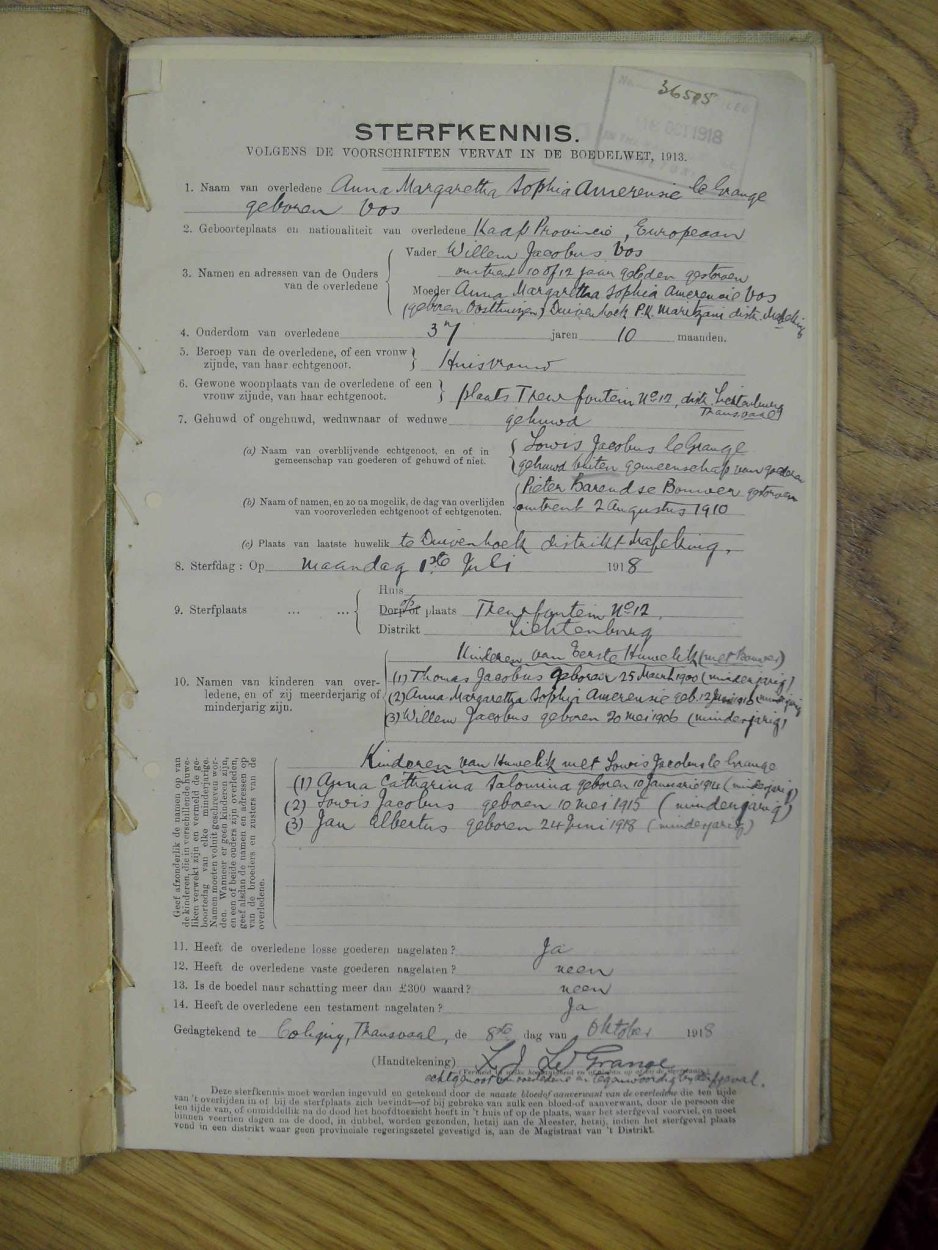 36505
OCT 1918
STERFKENNIS.
VOLGENS DE VOORSCHRIFTEN VERVAT IN DE BOEDELWET, 1913.
1. Naam van overledene Anna Margaretha Sophia Amerensie le Grange
geboren Vos
2. Geboorteplaats en nationaliteit van overledene Kaap Provincie, Europeaan
3. Namen en adressen van de Ouders van de overledene
Vader Willem Jacobus Vos
omtrent 10 of 12 jaar geleden gestorven
Moeder Anna Margaretha Sophia Amerensie Vos
(geboren Oosthuizen) Duivenhoek P.K. Maritzani distr. Mafeking
4. Ouderdom van overledene 37 jaren 10 maanden.
5. Beroep van de overledene, of een vrouw zijnde, van haar echtgenoot. Huisvrouw
6. Gewone woonplaats van de overledene of een vrouw zijnde, van haar echtgenoot. plaats Treurfontein No 12, distr. Lichtenburg
Transvaal
7. Gehuwd of ongehuwd, weduwnaar of weduwe gehuwd
(a) Naam van overblijvende echtgenoot, en of in gemeenschap van goederen of gehuwd of niet.
Lowis Jacobus le Grange
gehuwd buiten gemeenschap van goederen
(b) Naam of namen, en zo na mogelik, de dag van overlijden van vooroverleden echtgenoot of echtgenoten.
Pieter Barend se Bouwer gestorven
omtrent 2 Augustus 1910
(c) Plaats van laatste huwelik te Duivenhoek distrikt Mafeking.
8. Sterfdag : Op maandag 1ste Juli 1918
9. Sterfplaats ... ...
Huis
Dorp of plaats Treurfontein No 12
Distrikt Lichtenburg
10. Namen van kinderen van overledene, en of zij meerderjarig of minderjarig zijn.
Kinderen van Eerste Huwelik (met Bouwer)
(1) Thomas Jacobus geboren 25 Maart 1900 (minderjarig)
(2) Anna Margaretha Sophia Amerensie geb. 12 (minderjarig)
(3) Willem Jacobus geboren 20 mei 1906 (minderjarig)
Geef afzonderlik de namen op van
de kinderen, die in verschillende huwe-
liken verwekt zijn en vermeld de ge-
boortedag van elke minderjarige.
Namen moeten voluit geschreven wor-
den. Wanneer er geen kinderen zijn,
en een of beide ouders zijn overleden,
geef alsdan de namen en adressen op
van de broeders en zusters van de
overledene.
Kinderen van Huwelik met Lowis Jacobus le Grange
(1) Anna Catharina Salomina geboren 10 Januarie (minderjarig)
(2) Lowis Jacobus geboren 10 mei 1915 (minderjarig)
(3) Jan Albertus geboren 24 Juni 1918 (minderjarig)
11. Heeft de overledene losse goederen nagelaten ? Ja
12. Heeft de overledene vaste goederen nagelaten ? neen
13. Is de boedel naar schatting meer dan £300 waard ? neen
14. Heeft de overledene een testament nagelaten ? Ja
Gedagtekend te Coligny, Transvaal, de 8ste dag van Oktober 1918
(Handtekening) L J Le Grange
echtgenoot van overledene en tegenwoordig bij sterfgeval.
Deze sterfkennis moet worden ingevuld en getekend door de naaste bloed of aanverwant van de overledene die ten tijde
van 't overlijden in of bij de sterfplaats zich bevindt—of bij gebreke van zulk een bloed of aanverwant, door de persoon die
ten tijde van, of onmiddellik na de dood het hoofdtoezicht heeft in 't huis of op de plaats, waar het sterfgeval voorviel, en moet
binnen veertien dagen na de dood, in dubbel, worden gezonden, hetzij aan de Meester, hetzij, indien het sterfgeval plaats
vond in een distrikt waar geen provinciale regeringszetel gevestigd is, aan de Magistraat van 't Distrikt.